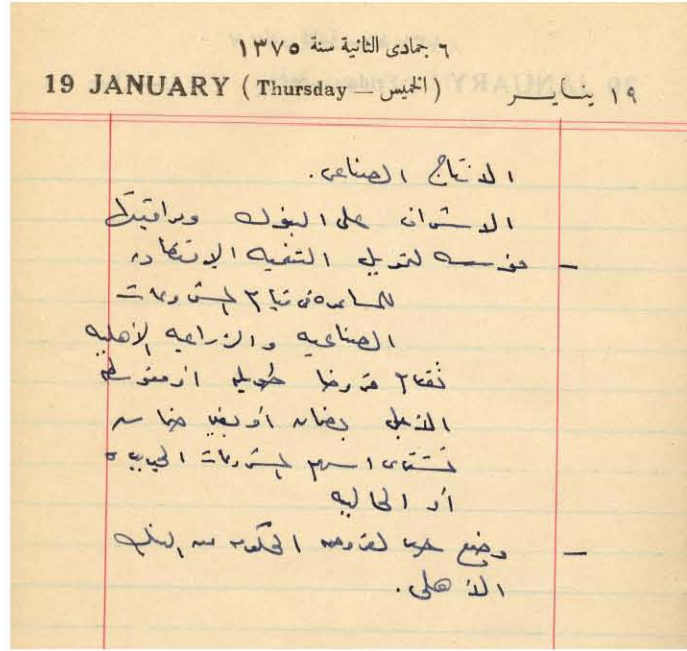 ٦ جمادى الثانية سنة ١٣٧٥
19 JANUARY (Thursday — الخميس) ١٩ ينايـــر
الانتاج الصناعى.
الاشراف على البنوك ومراقبتها
– مؤسسه لتمويل التنميه الاقتصاديه
للمساعده فى قيام المشروعات
الصناعيه والزراعيه الأهليه
تقدم قروضا طويله او متوسطه
الأجل بضمان أو بغير ضمان
تشترى اسهم المشروعات الجديده
أو الحاليه
– وضع حد لقروض الحكومه من البنك
الأهلى.